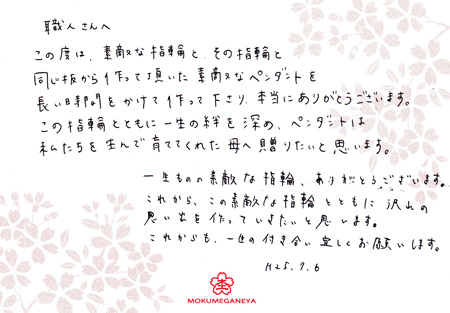 職人さんへ
この度は、素敵な指輪と、その指輪と
同じ板から作って頂いた素敵なペンダントを
長い時間をかけて作って下さり、本当にありがとうございます。
この指輪とともに一生の絆を深め、ペンダントは
私たちを生んで育ててくれた母へ贈りたいと思います。
一生ものの素敵な指輪、ありがとうございます。
これから、この素敵な指輪とともに沢山の
思い出を作っていきたいと思います。
これからも、一生の付き合い宜しくお願いします。
H25.9.6
MOKUMEGANEYA